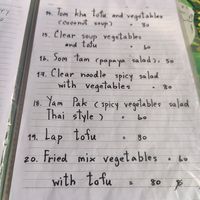 14. Tom kha tofu and vegetables
(coconut soup) = 80
15. Clear soup vegetables
and tofu = 60
16. Som Tam (papaya salad). 50
17. Clear noodle spicy salad
with vegetables = 80
18. Yam Pak (spicy vegetables salad
Thai style) = 60
19. Lap tofu = 80
20. Fried mix vegetables = 60
with tofu = 80